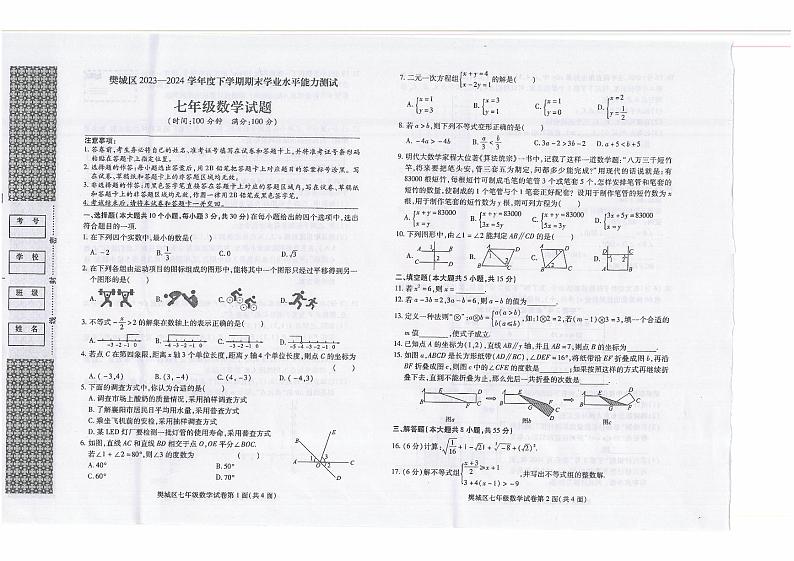 考 号
学 校
班 级
姓 名
樊城区 2023—2024 学年度下学期期末学业水平能力测试
七年级数学试题
(时间:100 分钟 满分:100 分)
注意事项:
1. 答卷前,考生务必将自己的姓名、准考证号填写在试卷和答题卡上,并将准考证号条形码
粘贴在答题卡上指定位置。
2. 选择题的作答:每小题选出答案后,用 2B 铅笔把答题卡上对应题目的答案标号涂黑。写
在试卷、草稿纸和答题卡上的非答题区域均无效。
3. 非选择题的作答:用黑色签字笔直接答在答题卡上对应的答题区域内,写在试卷、草稿纸
和答题卡上的非答题区域均无效,作图一律用 2B 铅笔或黑色签字笔。
4. 考试结束后,请将本试卷和答题卡一并上交。
一、选择题(本大题共 10 个小题,每小题 3 分,共 30 分)在每小题给出的四个选项中,选出
符合题目的一项.
1. 在下列四个实数中,最小的是( )
A. −2 B. 1/3 C. 0 D. √3
2. 在下列各组由运动项目的图标组成的图形中,能将其中一个图形只经过平移得到另一
个图形的是( )
A. B. C. D.
3. 不等式 −x/2 >2 的解集在数轴上的表示正确的是( )
A. B. C. D.
4. 若点 C 在第四象限,距离 x 轴 3 个单位长度,距离 y 轴 4 个单位长度,则点 C 的坐标为
( )
A. (−3,4) B. (3,−4) C. (4,−3) D. (−4,3)
5. 下面的调查方式中,你认为合适的是( )
A. 调查市场上酸奶的质量情况,采用抽样调查方式
B. 了解襄阳市居民日平均用水量,采用普查方式
C. 乘坐飞机前的安检,采用抽样调查方式
D. 某 LED 灯厂要检测一批灯管的使用寿命,采用普查方式
6. 如图,直线 AC 和直线 BD 相交于点 O,OE 平分∠BOC.
若∠1+∠2=80°,则∠3 的度数为 ( )
A. 40° B. 50°
C. 60° D. 70°
樊城区七年级数学试卷第 1 面(共 4 面)
7. 二元一次方程组 {x+y=4 x−2y=1 的解是( )
A. {x=1 y=3 B. {x=3 y=1 C. {x=1 y=0 D. {x=2 y=1/2
8. 若 a>b,则下列不等式变形正确的是( )
A. −4a>−4b B. a/3<b/3 C. 3a−2>3b−2 D. a+5<b+5
9. 明代大数学家程大位著《算法统宗》一书中,记载了这样一道数学题:“八万三千短竹
竿,将来要把笔头安,管三套五为期定,问郎多少能完成?”用现代的话说就是:有
83000 根短竹,每根短竹可制成毛笔的笔管 3 个或笔套 5 个,怎样安排笔管和笔套的
短竹的数量,使制成的 1 个笔管与 1 个笔套正好配套?设用于制作笔管的短竹数为 x
根,用于制作笔套的短竹数为 y 根,则可列方程为( )
A. {x+y=83000 3x=5y B. {x+y=83000 x=y C. {x+y=83000 5x=3y D. {3x+5y=83000 x=y
10. 下列图形中,由∠1=∠2 能判定 AB∥CD 的是( )
A. B. C. D.
二、填空题(本大题共 5 小题,共 15 分)
11. 若 x²=6,则 x=______.
12. 若 a−3b=2,3a−b=6,则 a−b 的值为______.
13. 定义一种法则“⊗”:a⊗b={a(a>b) b(a≤b),如:1⊗2=2,若(m−1)⊗3=3,填一个合适的
m 值______,使式子成立.
14. 已知点 A 的坐标为(1,2),直线 AB∥y 轴,并且 AB=7,则点 B 的坐标为______.
15. 如图 a,ABCD 是长方形纸带(AD∥BC),∠DEF=16°,将纸带沿 EF 折叠成图 b,再沿
BF 折叠成图 c,则图 c 中的∠CFE 的度数是______;如果按照这样的方式再继续折
叠下去,直到不能折叠为止,那么先后一共折叠的次数是______.
图a 图b 图c
三、解答题(本大题共 8 小题,共 55 分)
16. (6 分)计算:
17. (6 分)解不等式组 ,并写出不等式组的整数解.
樊城区七年级数学试卷第 2 面(共 4 面)